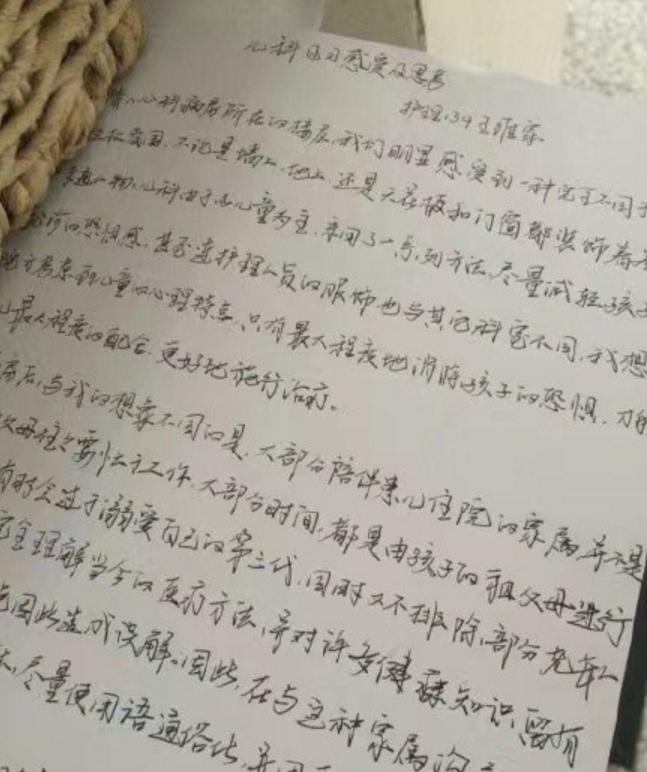 儿科见习感受及思考
护理134 王维家
儿科病房所在的楼层,我们明显感受到一种完全不同于
氛围,不论是墙上、地上,还是天花板和门窗都装饰着
物,儿科由于以儿童为主,采用了一系列方法,尽量减轻孩子
的恐惧感,甚至连护理人员的服饰也与其它科室不同,我想
考虑到儿童的心理特点,只有最大程度地消除孩子的恐惧,才能
最大程度的配合,更好地施行治疗。
病房后,与我的想象不同的是,大部分陪伴患儿住院的家属并不是
父母往往要忙于工作,大部分时间,都是由孩子的祖父母进行
有时会过于溺爱自己的第三代,同时又不排除,部分老年人
完全理解当今的医疗方法,并对许多健康知识留有
免因此造成误解。因此,在与这种家属沟
尽量使用语通俗化,并用